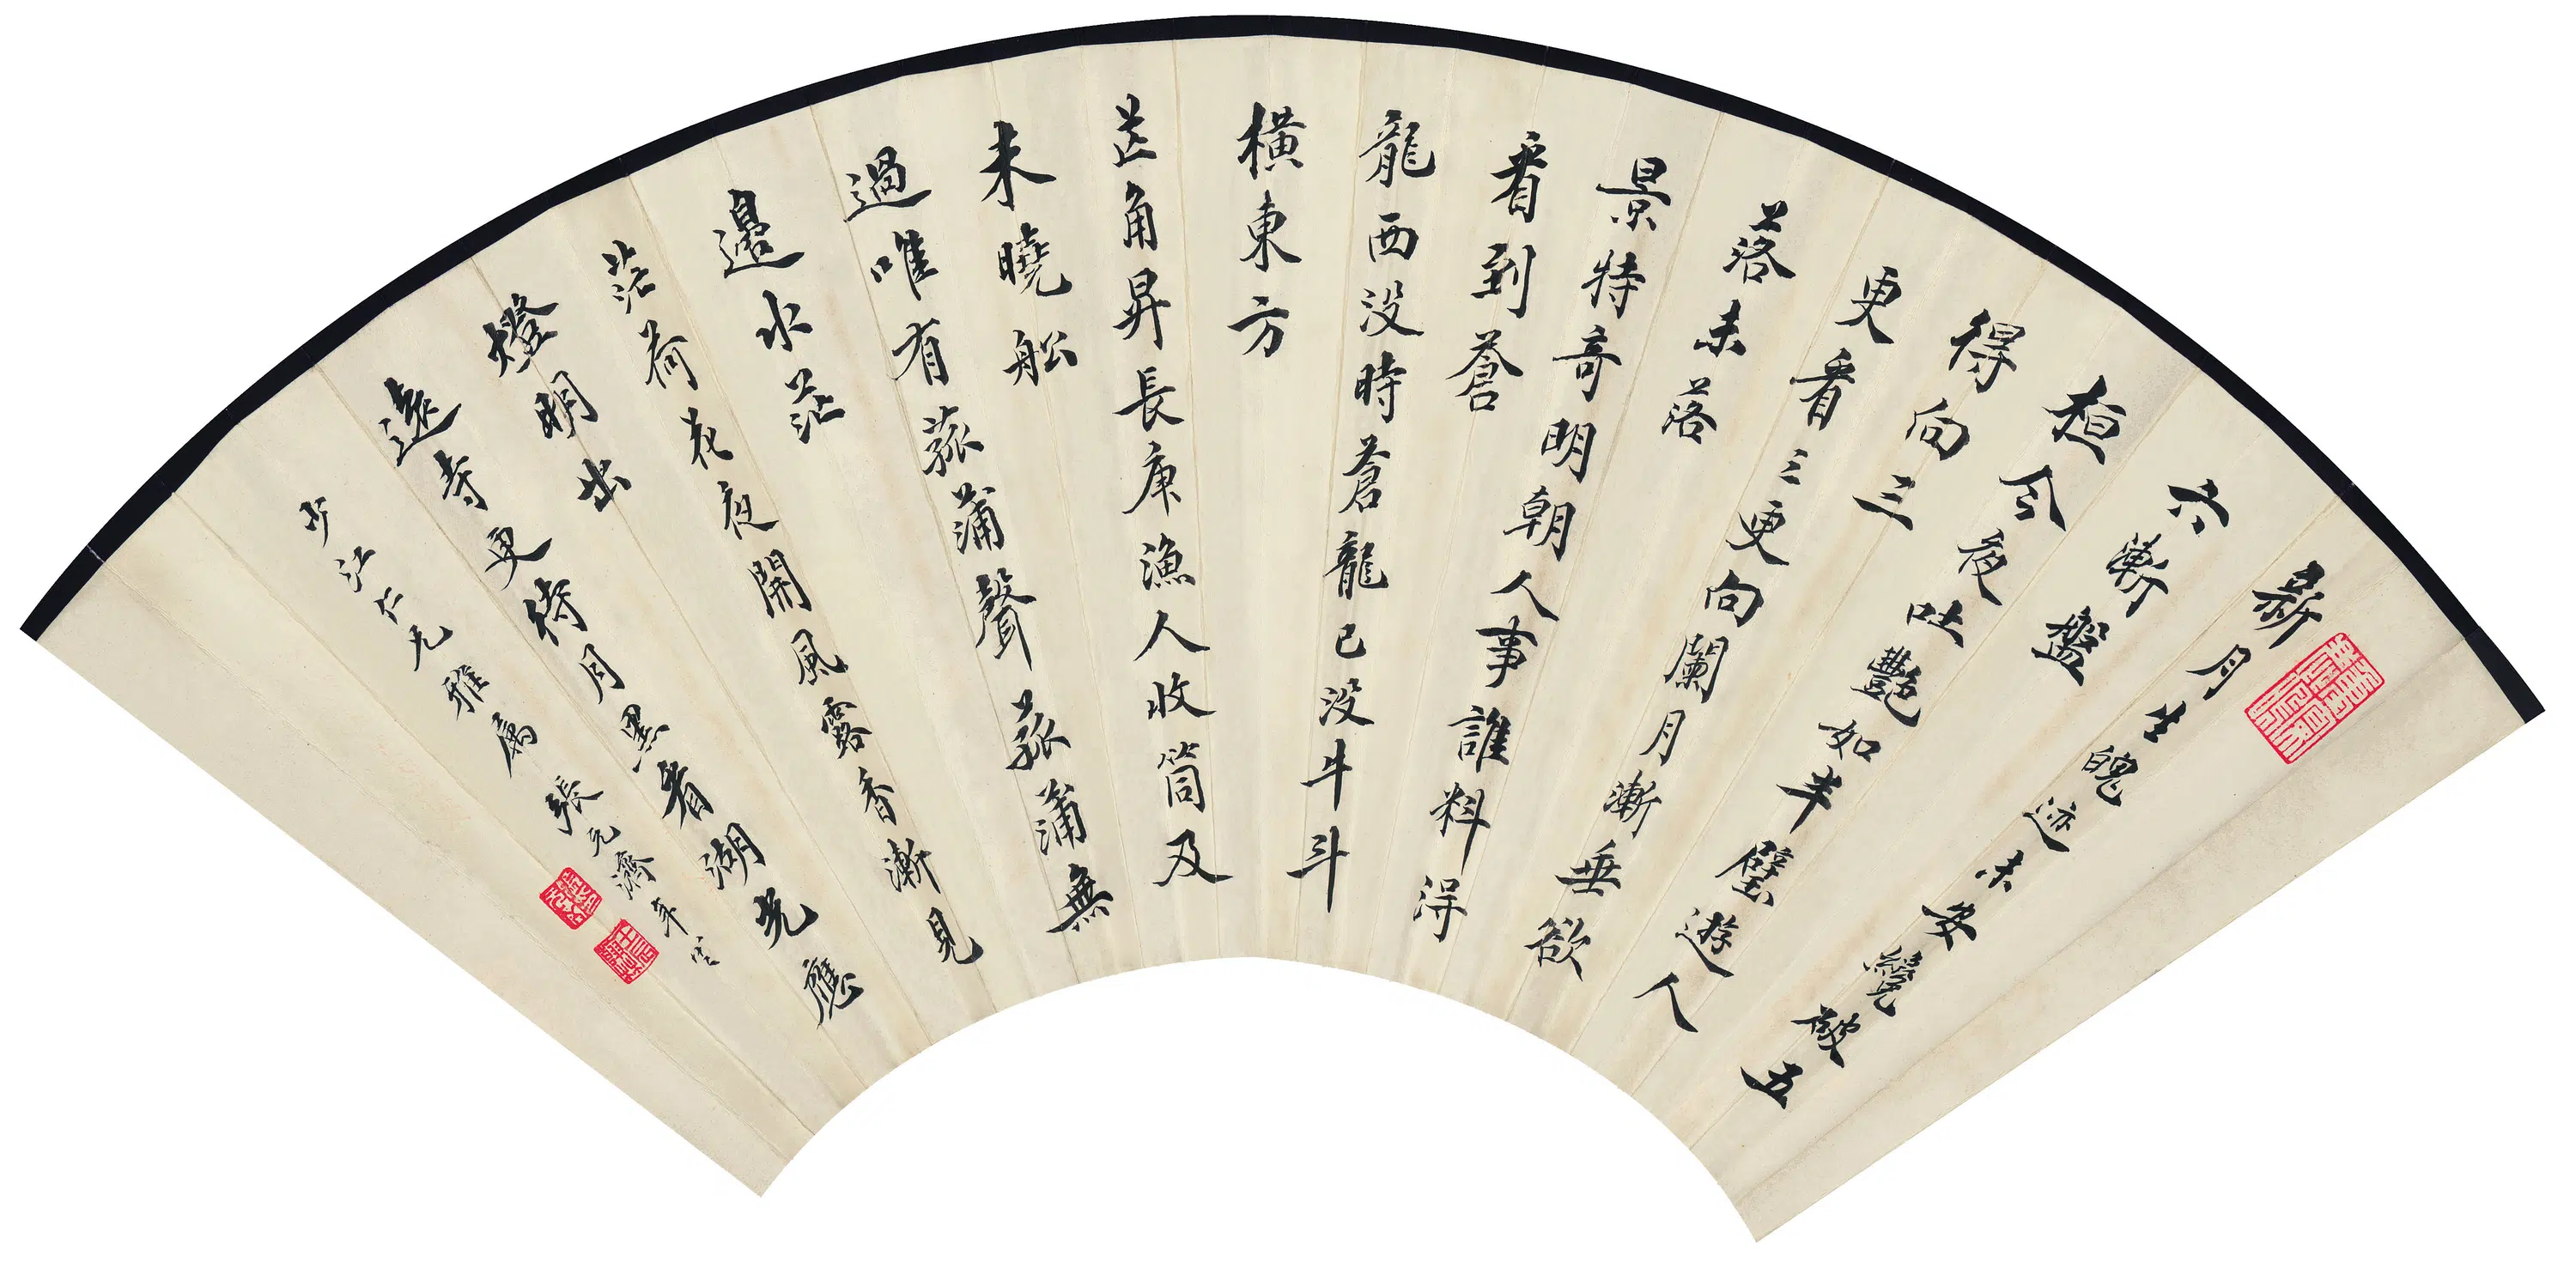 新月生魄迹未安纔破五
六漸盤
桓今夜吐豔如半璧遊人
得向三
更看三更向闌月漸垂欲
落未落
景特奇明朝人事誰料得
看到蒼
龍西没時蒼龍已没牛斗
橫東方
芒角昇長庚漁人收筒及
未曉舩
過唯有菰蒲聲菰蒲無
邊水茫
茫荷花夜開風露香漸見
燈明出
遠寺更待月黑看湖光應
少江仁兄雅屬 張元濟